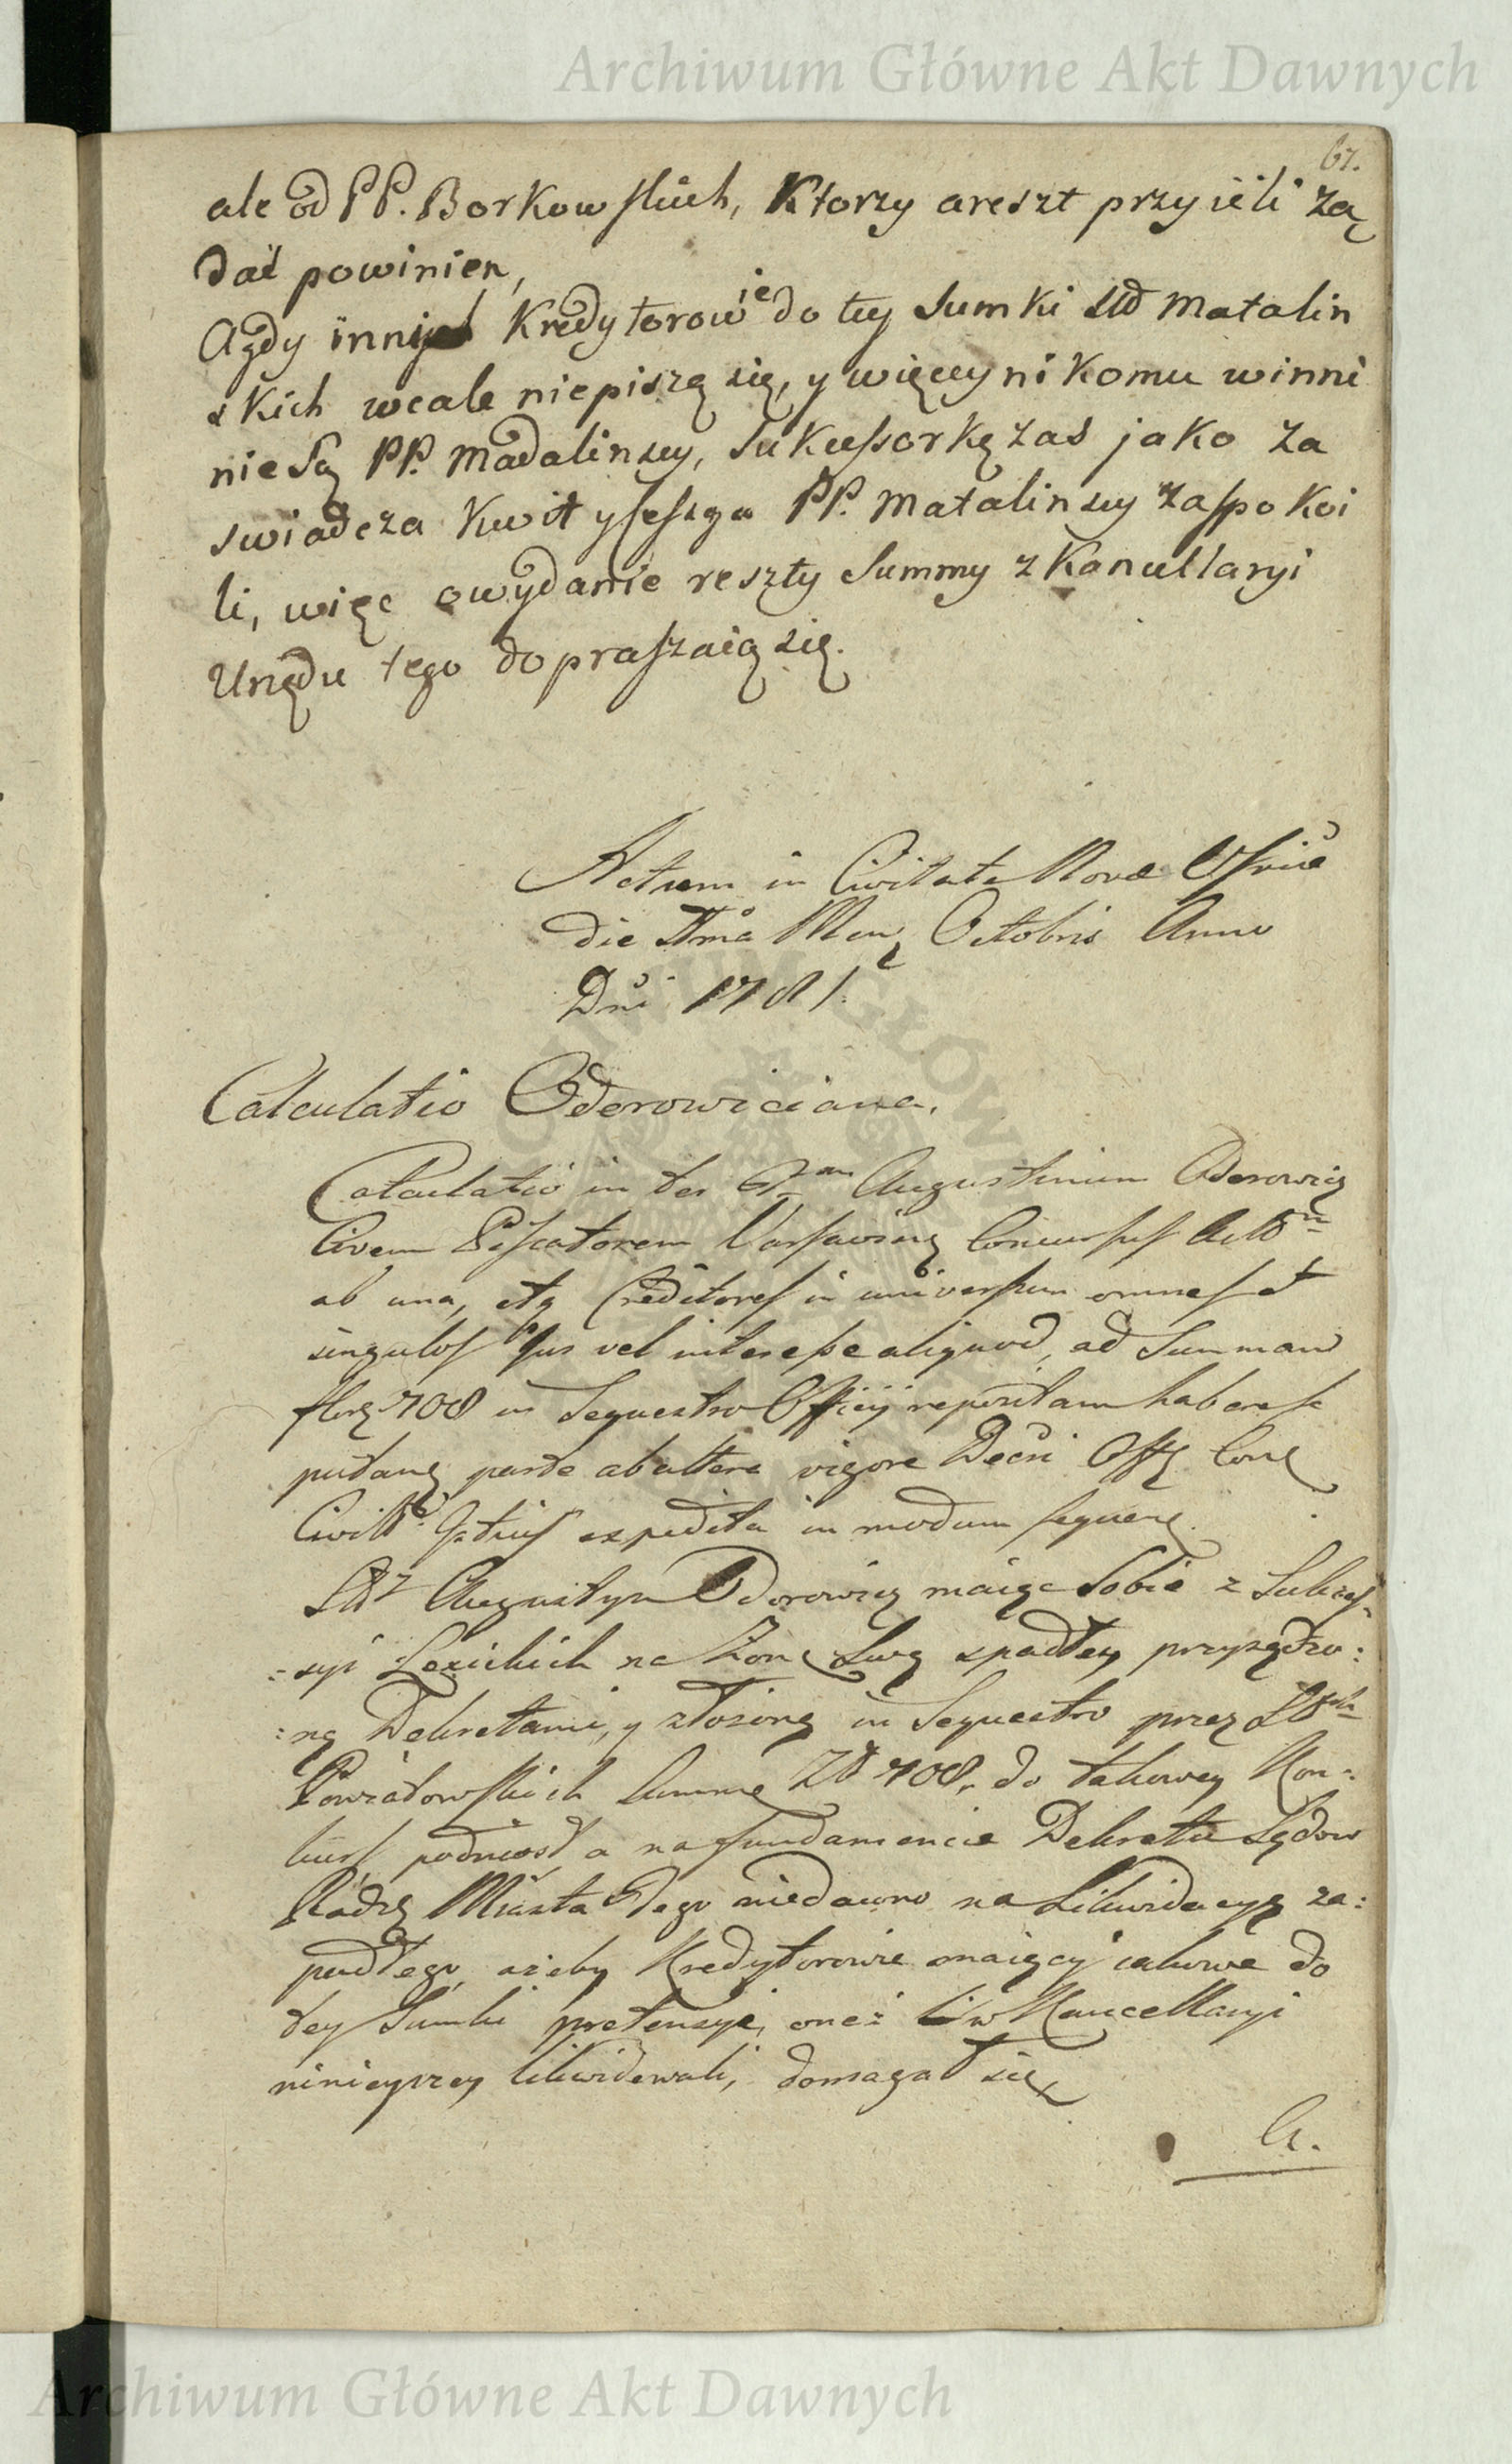 Archiwum Główne Akt Dawnych
67.
ale od PP. Borkowskich, Ktorzy areszt przyieli zą
dać powinien,
Agdy inni Kredytorowie do tey Sumki Sld Matalin
skich wcale niepiszą się, y więcey nikomu winni
nie Są PP. Madalinscy, Sukcessorkę zas jako za
swiadcza Kwit y PP. Matalinscy zaspokoi
li, więc owydanie reszty Summy z Kancellaryi
Urzędu tego dopraszaią się.
Actum in Civitate Nova Vsviẽ
die IIma Men. Octobris Anno
Dni 1781.
Calculatio Oderowiciana.
Calculatio inter Augustinum Oderowicz
Civem Piscatorem Varsavien Concursus Act
ab una, atq Creditores in universum omnes et
singulos Jus vel interesse aliquod, ad Summam
flor 708 in Sequestro Officij repositam habere se
putan parte ab altera vigore Decri Off Con
Civitt Istius expedita in modum sequen.
Augustyn Oderowicz maiąc Sobie z Sukces-
=syi Łozickich na Zonę Swą spadłey przysądzo:
:ną Dekretami, y złożoną in Sequestro przez
Powiatowskich Summę Zł 708. do takowey Kon-
kurs podniosł a nafundamencie Dekretu Sądow
Radz Miasta Tego niedawno na Likwidacyą za:
padłego, ażeby Kredytorowie maiący iakowe do
tey Sumki pretensye, oneż w Kancellaryi
ninieyszey likwidowali, domagał się,
A.
Archiwum Główne Akt Dawnych